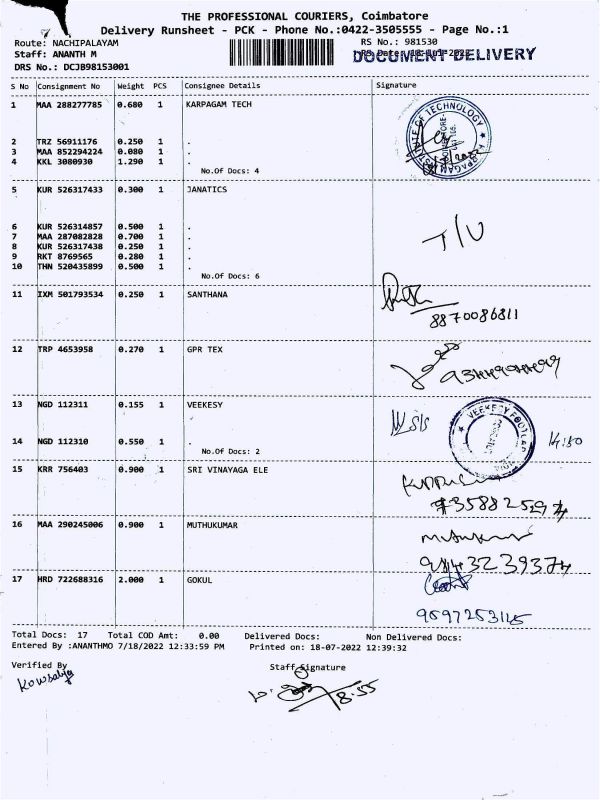 THE PROFESSIONAL COURIERS, Coimbatore
Delivery Runsheet - PCK - Phone No.:0422-3505555 - Page No.:1
Route: NACHIPALAYAM RS No.: 981530
Staff: ANANTH M DOCUMENT DELIVERY
DRS No.: DCJB98153001
S No Consignment No Weight PCS Consignee Details Signature
1 MAA 288277785 0.680 1 KARPAGAM TECH
2 TRZ 56911176 0.250 1 .
3 MAA 852294224 0.080 1 .
4 KKL 3080930 1.290 1 .
No.Of Docs: 4
5 KUR 526317433 0.300 1 JANATICS
6 KUR 526314857 0.500 1 .
7 MAA 287082828 0.700 1 .
8 KUR 526317438 0.250 1 .
9 RKT 8769565 0.280 1 .
10 THN 520435899 0.500 1 .
No.Of Docs: 6
T/U
11 IXM 501793534 0.250 1 SANTHANA
8870086811
12 TRP 4653958 0.270 1 GPR TEX
13 NGD 112311 0.155 1 VEEKESY
VEEKESY FOOTCAP
14 NGD 112310 0.550 1 .
No.Of Docs: 2
15 KRR 756403 0.900 1 SRI VINAYAGA ELE
16 MAA 290245006 0.900 1 MUTHUKUMAR
9843239374
17 HRD 722688316 2.000 1 GOKUL
9597253125
Total Docs: 17 Total COD Amt: 0.00 Delivered Docs: Non Delivered Docs:
Entered By :ANANTHMO 7/18/2022 12:33:59 PM Printed on: 18-07-2022 12:39:32
Verified By Staff Signature
8.55